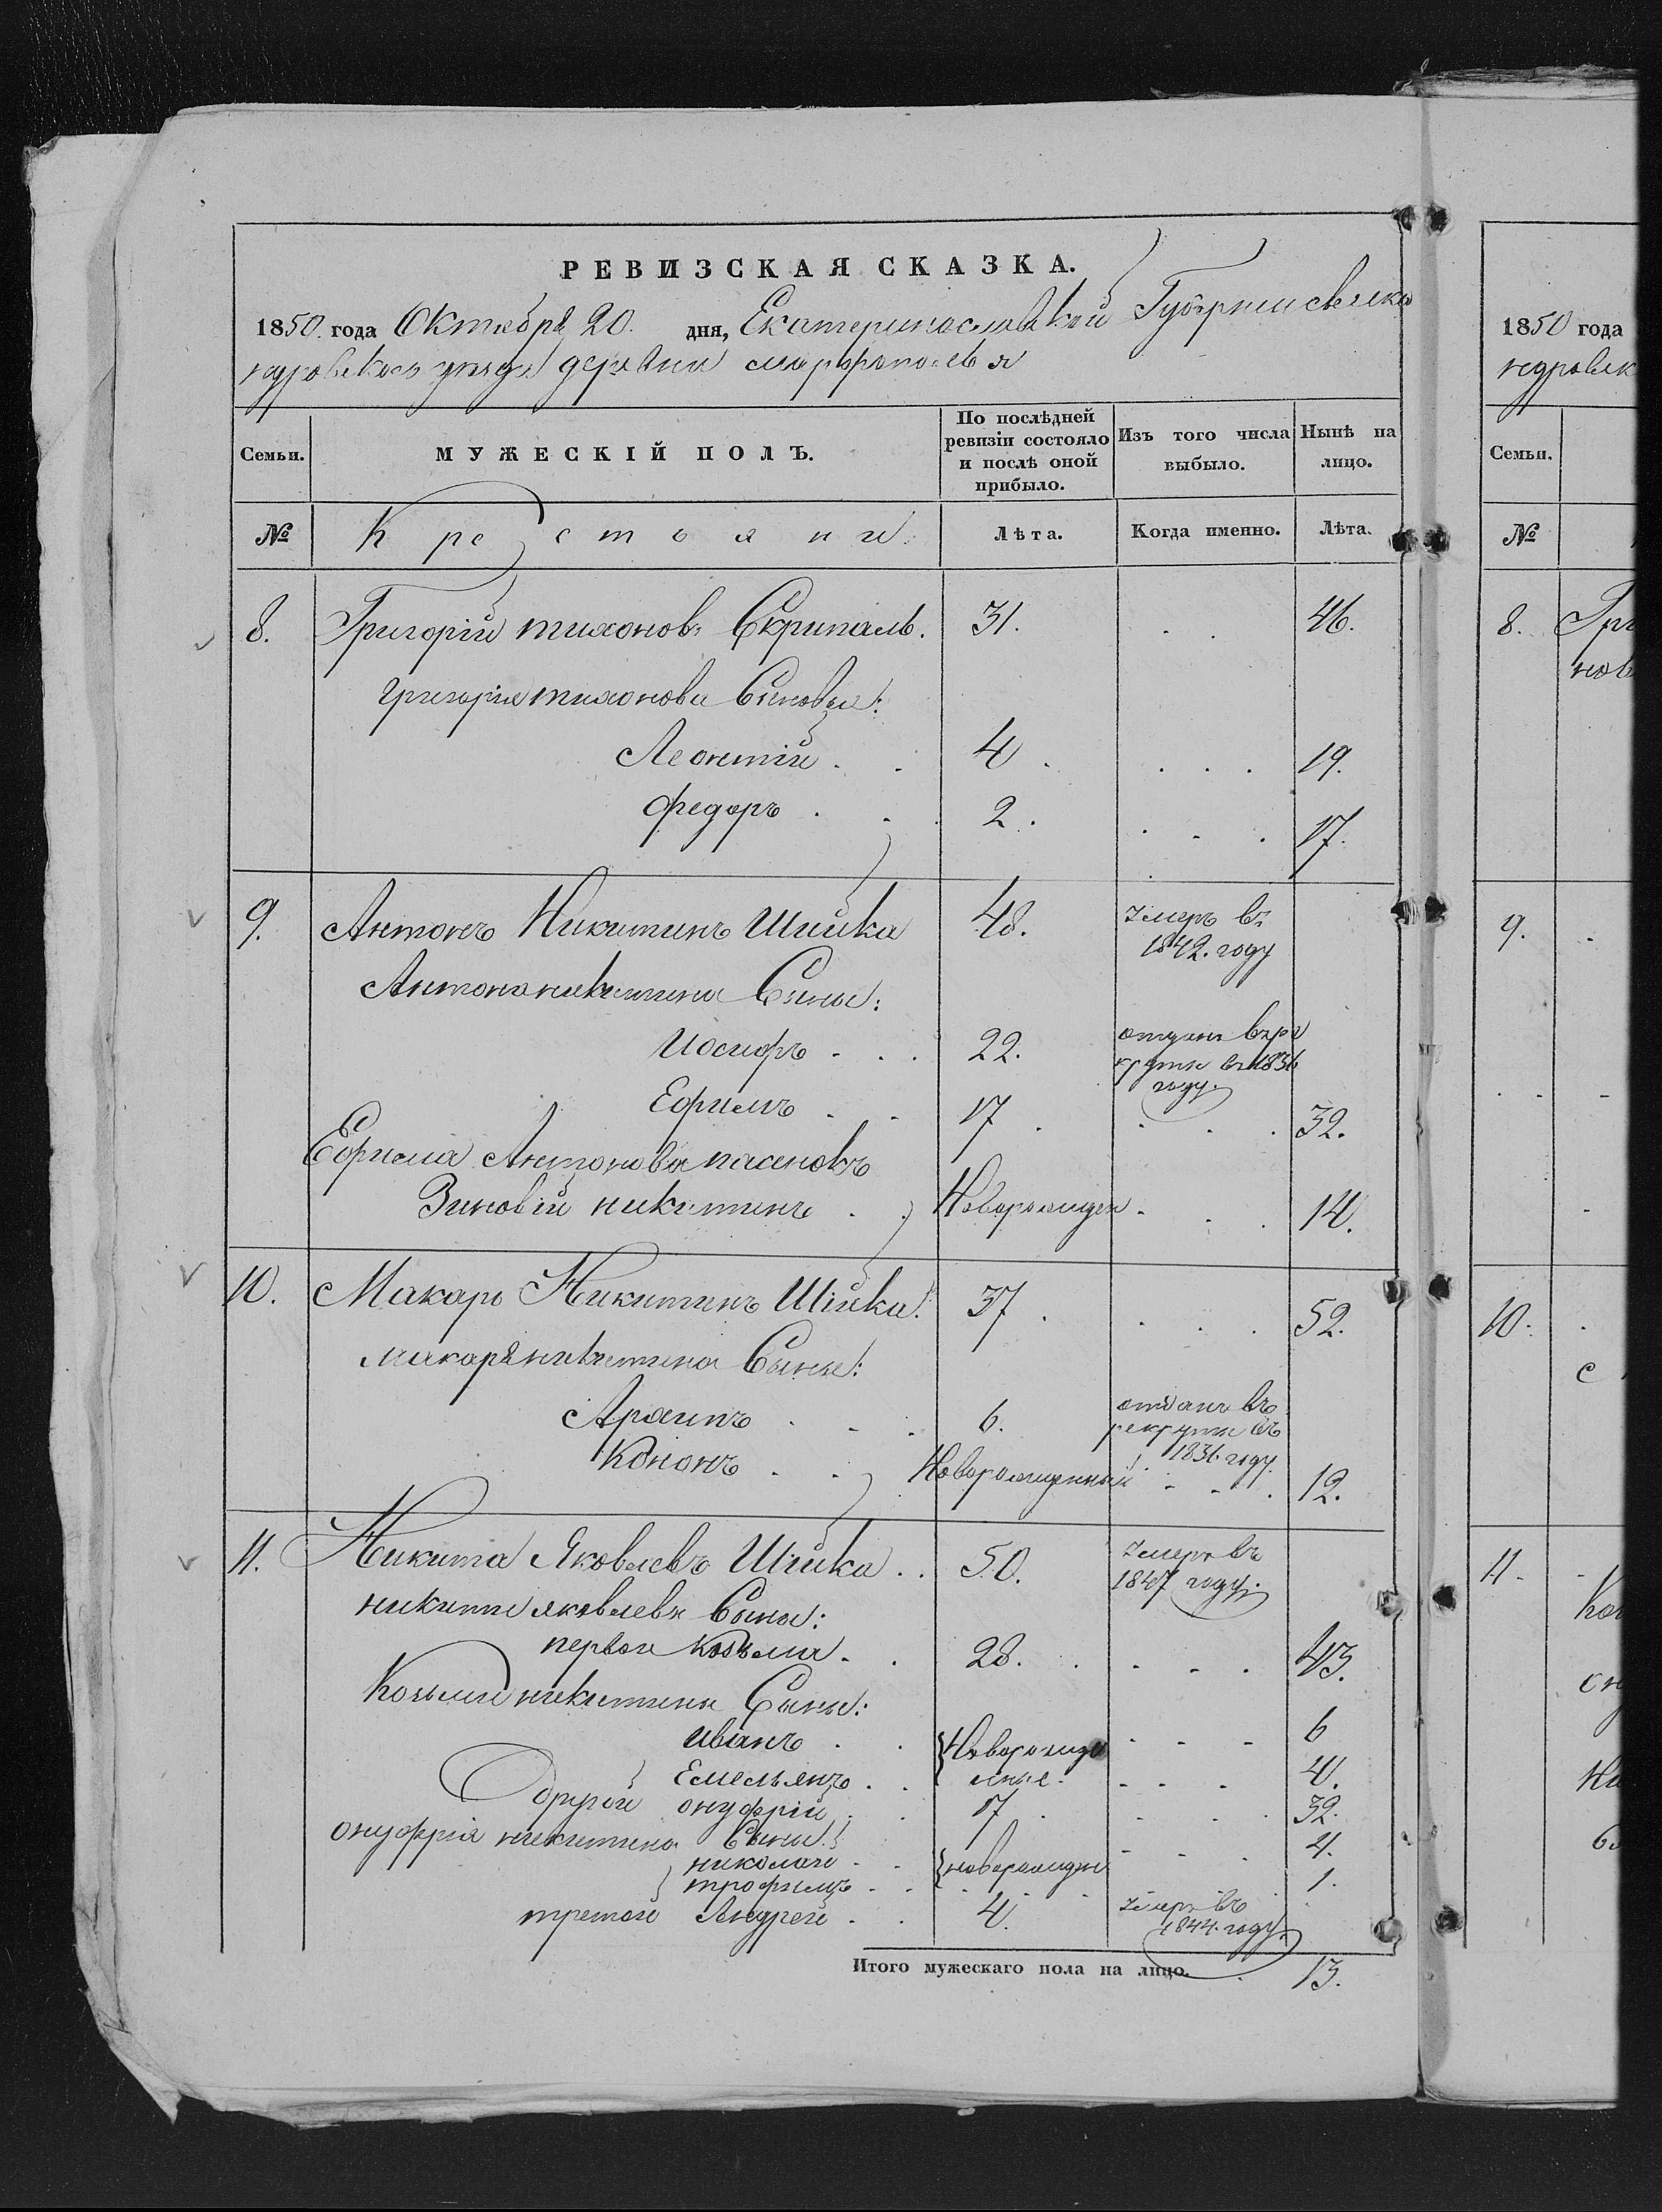 РЕВИЗСКАЯ СКАЗКА.
1850. года Октября 20. дня, Екатеринославской Губерніи алекса
ндровскаго уѣзда деревни марфополья
Семьи. МУЖЕСКІЙ ПОЛЪ. По послѣдней ревизіи состояло и послѣ оной прибыло. Изъ того числа выбыло. Нынѣ на лицо.
№ Крестьяни Лѣта. Когда именно. Лѣта.
8. Григорій тихоновъ Скрипаль. 31. 46.
григорія тихонова Сыновья:
Леонтій 4 19.
федоръ 2. 17.
9. Антонъ Никитинъ Шийка 48. умеръ въ
1842. году
Антона никитина Сыны:
Иосифъ 22. отданъ въ ре
круты въ 1836
году.
Ефимъ 17 32.
Ефима Антонова пасинокъ
Зиновій никитинъ Новорожден 14.
10. Макаръ Никитинъ Шійка. 37 52.
макара никитина Сыны:
Архипъ 6. отданъ въ
рекруты въ
1836. году.
Кононъ Новорожденный 12.
11. Никита Яковлевъ Шийка 50. умеръ въ
1847 году.
никиты яковлева Сыны:
первой козьма 28. 43.
Козьмы никитина Сыны:
иванъ Новорожде 6
Емельянъ нные 4.
другой онуфрій 17 32.
онуфрія никитина Сыны
николай новорожден 4.
трофимъ 1.
третій Андрей 4. умеръ въ
1844. году.
Итого мужескаго пола на лицо. 13.
1850 года
ндровск
Семьи.
№
8. Гри
нов
9.
10.
с
11.
Коз
он